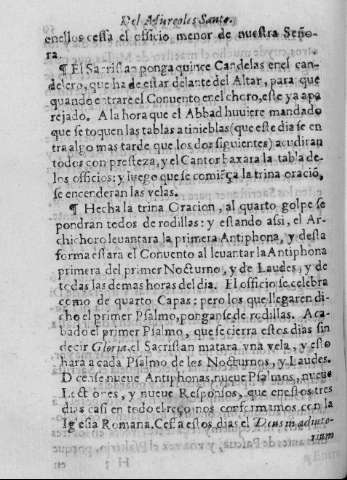 Del Miercoles Santo.
enellos cessa el officio menor de nuestra Seño-
ra.
¶ El Sacristan ponga quince Candelas en el can-
delero, que ha de estar delante del Altar, para que
quando entrare el Conuento en el choro, este ya apa
rejado. A la hora que el Abbad huuiere mandado
que se toquen las tablas a tinieblas (que este dia se en
tra algo mas tarde que los dos siguientes) acudiran
todos con presteza, y el Cantor baxara la tabla de-
los officios; y luego que se comiẽça la trina oraciõ,
se encenderan las velas.
¶ Hecha la trina Oracion, al quarto golpe se
pondran todos de rodillas: y estando assi, el Ar-
chichoro leuantara la primera Antiphona, y desta
forma estara el Conuento al leuantar la Antiphona
primera del primer Nocturno, y de Laudes, y de
todas las demas horas del dia. El officio se celebra
como de quarto Capas: pero los que llegaren di-
cho el primer Psalmo, ponganse de rodillas. Aca-
bado el primer Psalmo, que se cierra estos dias sin
decir Gloria, el Sacristan matara vna vela, y esto
hara a cada Psalmo de los Nocturnos, y Laudes.
Dicense nueue Antiphonas, nueue Psalmos, nueue
Lectiones, y nueue Responsos, que en estos tres
dias casi en todo el reço nos conformamos con la
Iglesia Romana. Cessa estos dias el Deus in adiuto-
rium
H